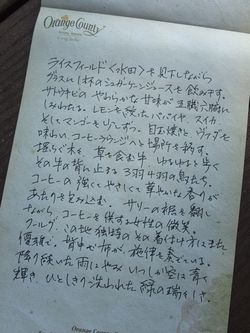 Orange County
ライスフィールド〈水田〉を見下しながら
グラスに1杯のシュガーケーンジュースを飲み干す。
サトウキビのやわらかな甘味が五臓六腑に
しみわたる。レモンを絞ったパパイヤ、スイカ、
そしてマンゴーを少しずつ。目玉焼きとヴァダを
味わい、コーヒーラウンジへと場所を移す。
揺らぐ水と 草を食む牛 ゆるゆると歩く
その牛の背に止まる3羽4羽の鳥たち。
コーヒーの強くてやさしくて華やいだ香りが
あたりを包み込む。 サリーの裾を翻し
ながら、コーヒーを供する女性の微笑。
クールグ、この地独特のその着付け方はまた
優雅で、背中で布が、施律を奏でている。
降り続いた雨はやみ いつしか空は青く
輝き、ひとしきり洗われた緑の瑞々しさ。
Orange County